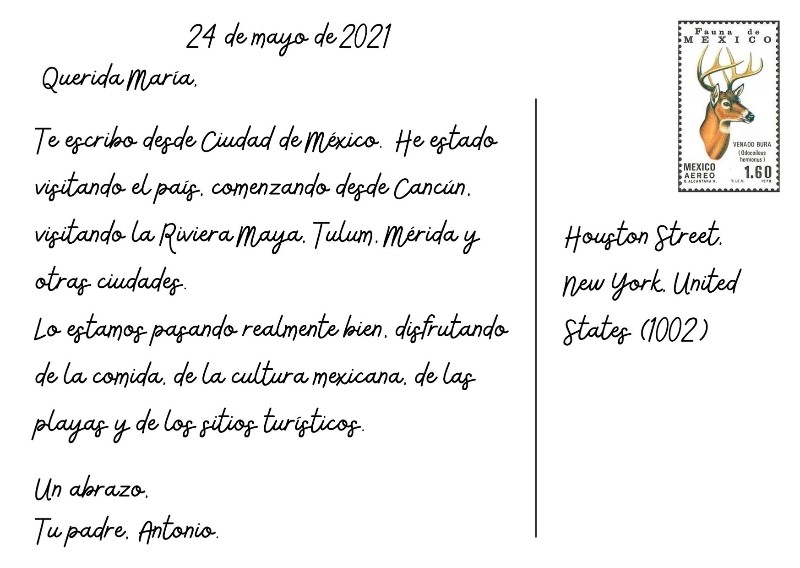 24 de mayo de 2021
Querida María,
Te escribo desde Ciudad de México. He estado
visitando el país, comenzando desde Cancún,
visitando la Riviera Maya, Tulum, Mérida y
otras ciudades.
Lo estamos pasando realmente bien, disfrutando
de la comida, de la cultura mexicana, de las
playas y de los sitios turísticos.
Un abrazo,
Tu padre, Antonio.
Fauna de
MEXICO
VENADO BURA
(Odocoileus
hemionus)
MEXICO
AEREO
1.60
1978
Houston Street,
New York, United
States (1002)